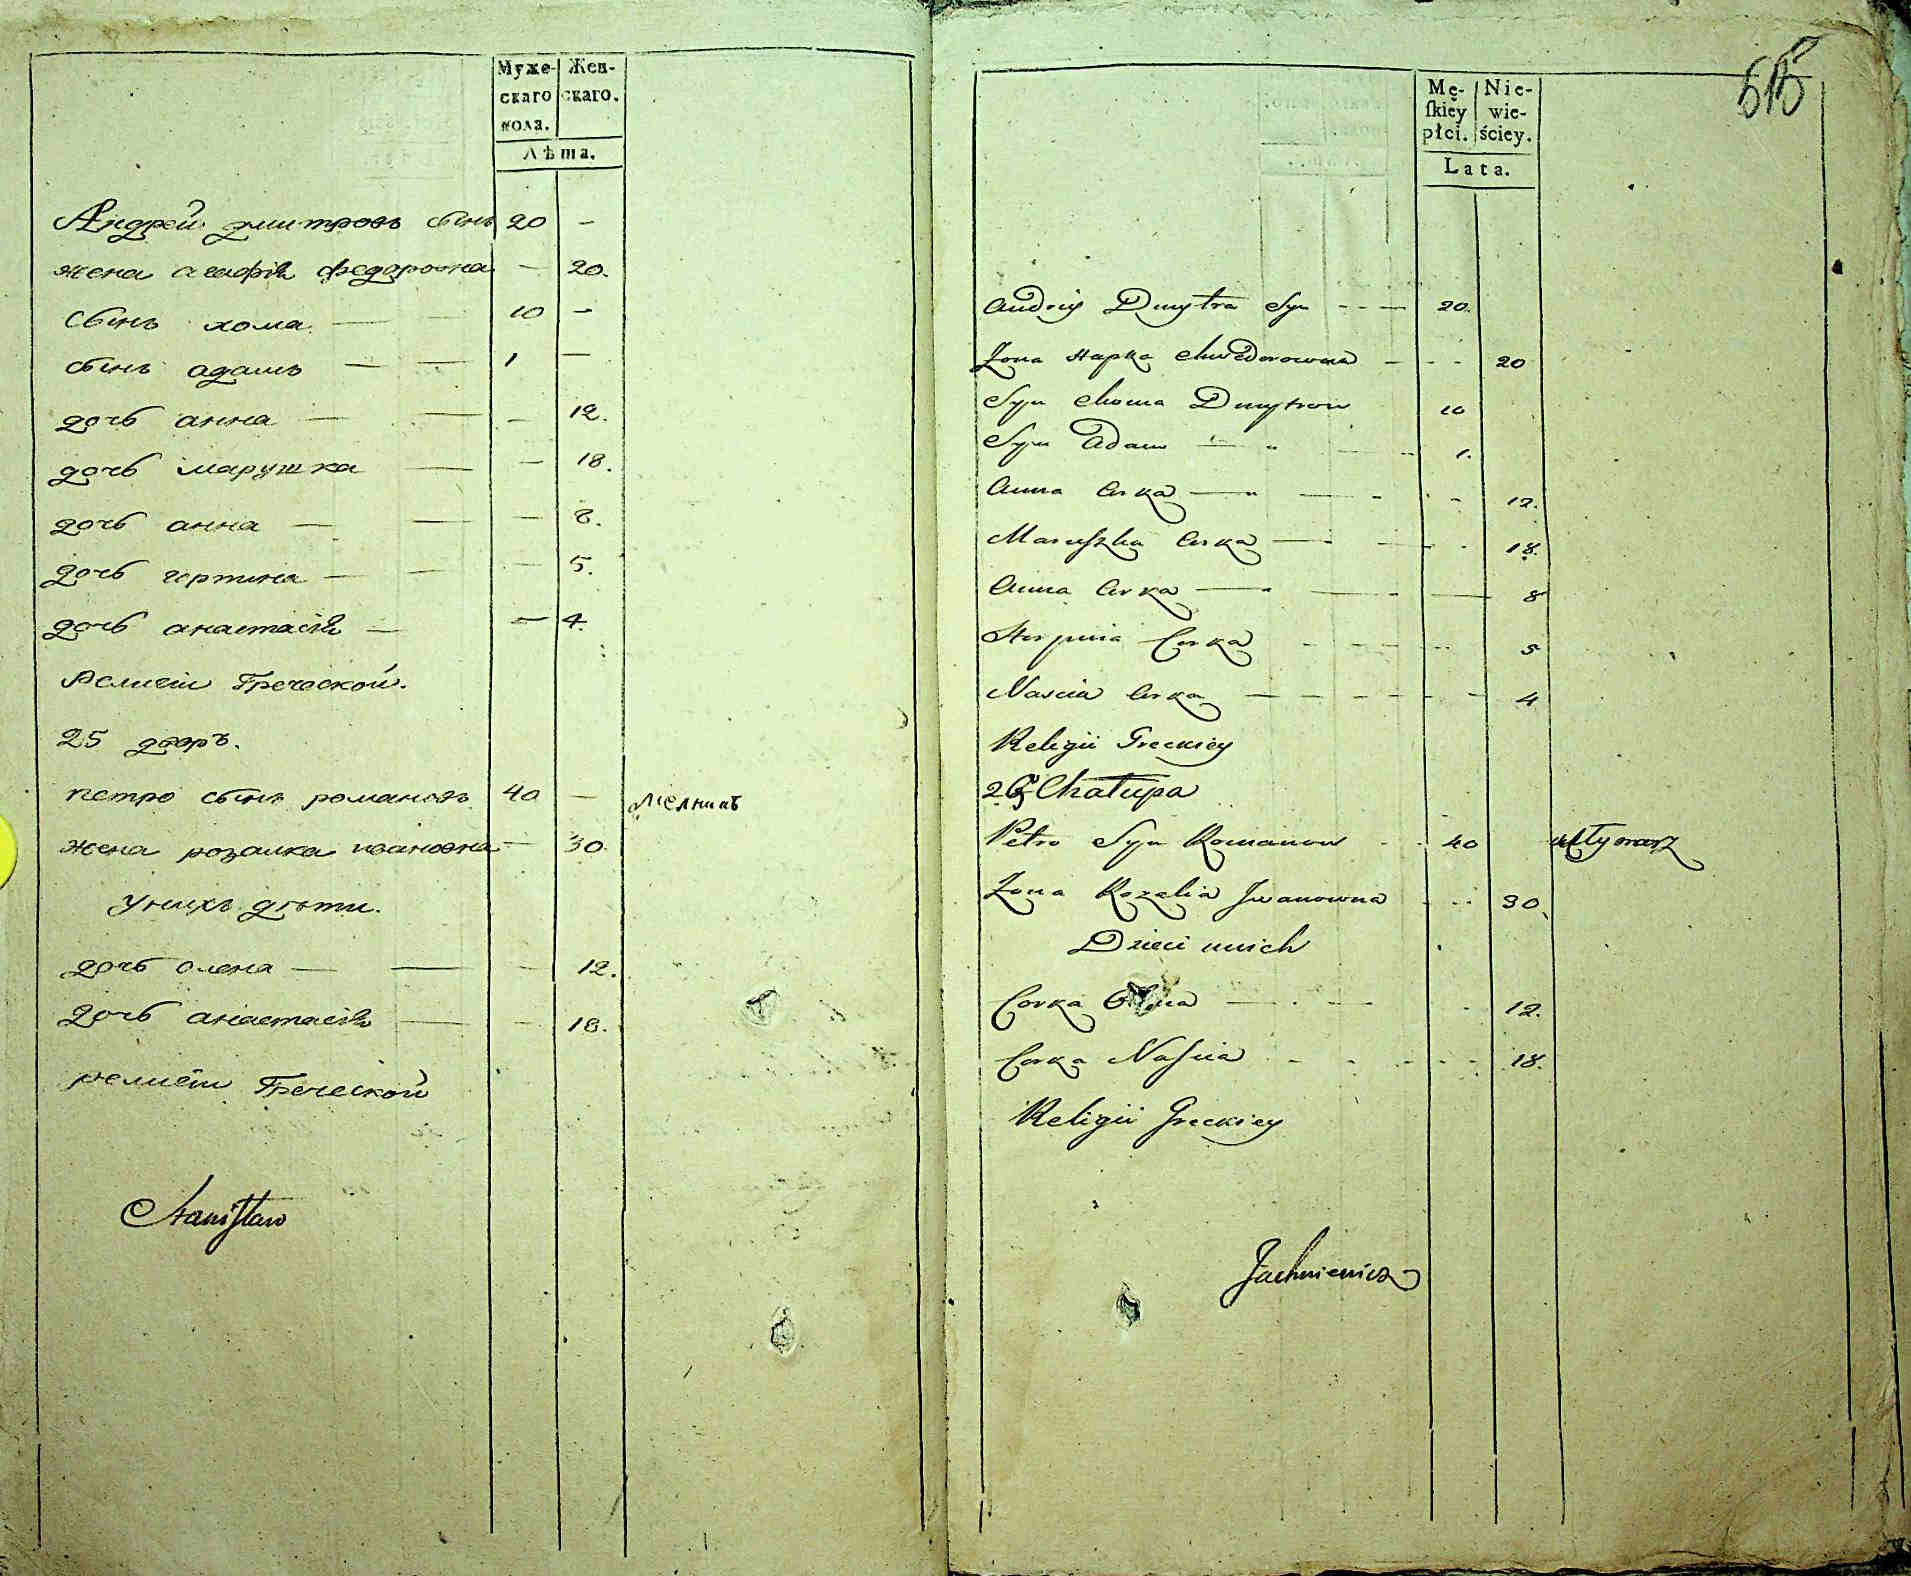 Муже- Жен-
скаго скаго.
пола.
Лѣта.
Андрей дмитровъ сынъ 20 —
жена агафія федоровна — 20.
сынъ хома — — 10 —
сынъ адамъ — — 1 —
дочь анна — — — 12.
дочь марушка — — 18.
дочь анна — — — 8.
дочь — — — 5.
дочь анастасія — — 4.
Религіи Греческой.
25 дворъ.
петро сынъ романовъ 40 — мелникъ
жена розалка ивановна — 30.
у нихъ дѣти.
дочь олена — — — 12.
дочь анастасія — — 18.
религіи Греческой
Stanisław
Mę- Nie-
skiey wie-
płci. ściey.
Lata.
Andriy Dmytra Syn - - — 20.
Żona Hapka Chwedorowna - - - 20
Syn Choma Dmytrow 10
Syn Adam — " — - 1.
Anna Corka — " — - - - 12.
Maruszka Corka — - — - - 18.
Anna Corka — - — — 8
Corka - - - - 5
Nascia Corka — - - - - - 4
Religii Greckiey
25 Chałupa
Petro Syn Romanow - - 40 Młynarz
Żona Rozalia Jwanowna - - 30.
Dzieci unich
Corka — - — - 12.
Corka Nascia - - - - - 18.
Religii Greckiey
Jachniewicz